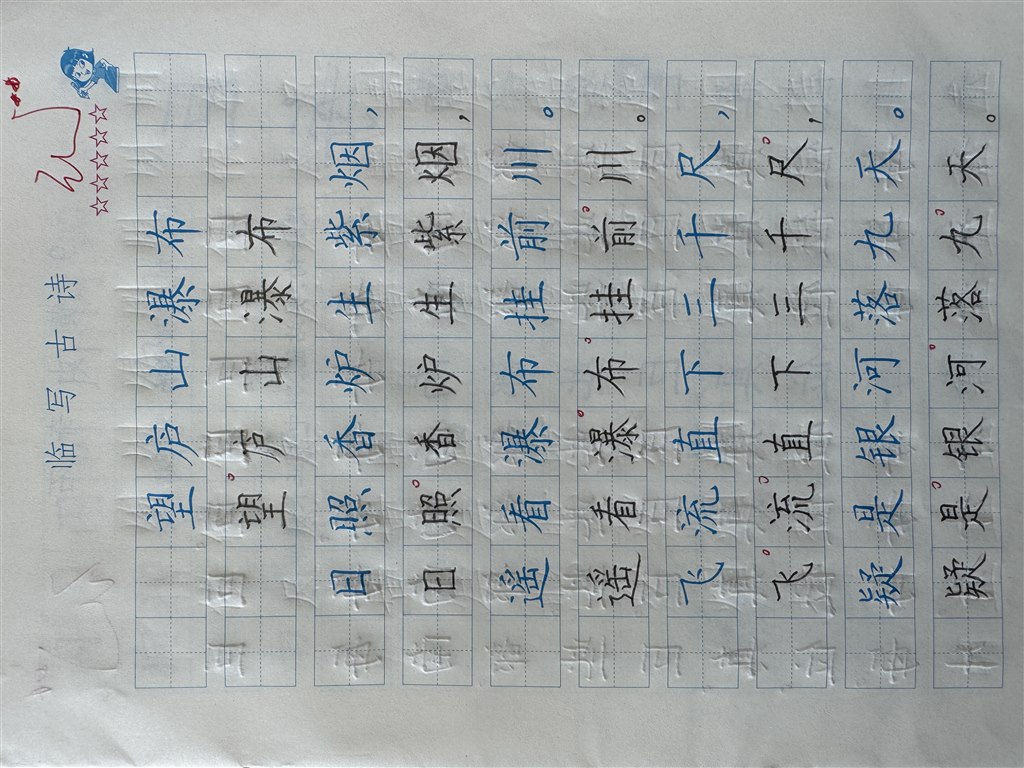 临写古诗
望庐山瀑布
望庐山瀑布
日照香炉生紫烟，
日照香炉生紫烟，
遥看瀑布挂前川。
遥看瀑布挂前川。
飞流直下三千尺，
飞流直下三千尺，
疑是银河落九天。
疑是银河落九天。